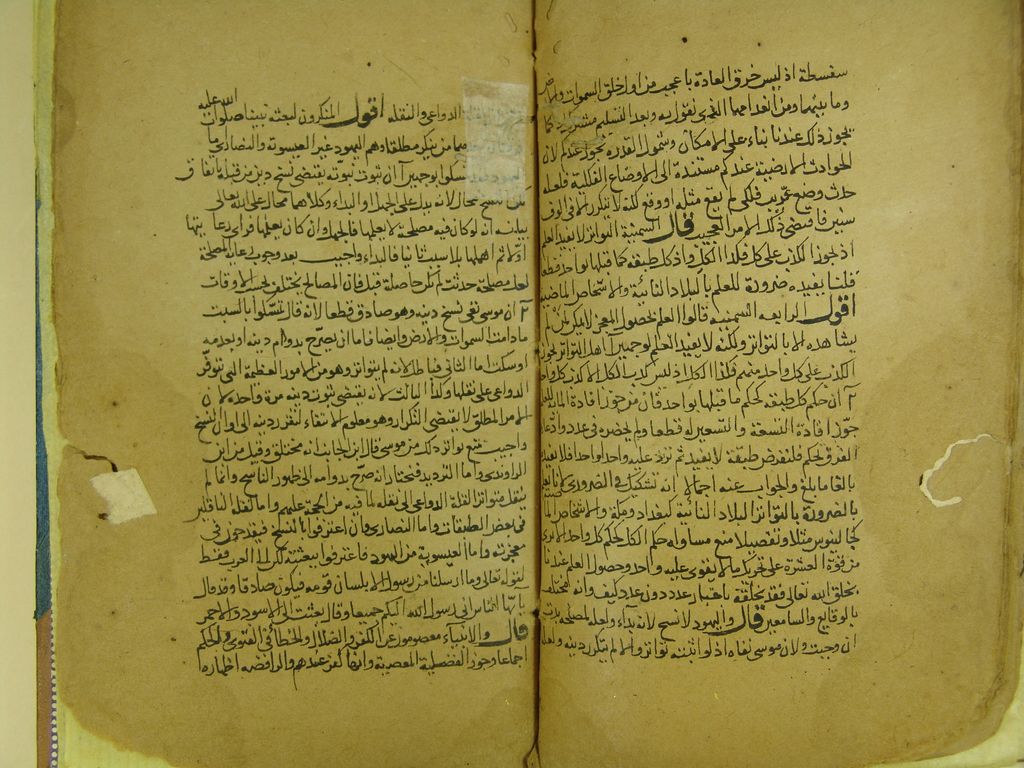 سفسطة اذ ليس خرق العادة باعجب من اول خلق السموات والارض
وما بينهما ومن انعدامها الذي نقول به وبعد التسليم
يجوز ذلك عندنا بناء على الامكان وشمول القدرة ويجوز عندكم لان
الحوادث الارضية عندكم مستندة الى الاوضاع الفلكية فلعله
حدث وضع غريب فلكي لم يقع مثله او وقع لكنه لا يتكرر الا في الوف
سنين فاقتضى ذلك الامر العجيب قال السمنية التواتر لا يفيد العلم
اذ يجوز الكذب على كل فكذا الكل واذ كل طبقة كما قبلها بواحد قطعا
قلنا يفيده ضرورة للعلم بالبلاد النائية والاشخاص الماضية
اقول الرابعة السمنية قالوا العلم بحصول المعجز لا يمكن لمن لم
يشاهده الا بالتواتر ولكنه لا يفيد العلم لوجهين ا اهل التواتر يجوز
الكذب على كل واحد منهم فكذا الكل اذ ليس كذب الكل الا كذب كل واحد
٢ ان حكم كل طبقة كحكم ما قبلها بواحد فان من جوز افادة المائة للعلم
جوز افادة التسعة والتسعين له قطعا ولم يحصره في عدد وادعاء
الفرق تحكم فلنفرض طبقة لا يفيد ثم نزيد عليه واحدا واحدا فلا يفيد
بالغا ما بلغ والجواب عنه اجمالا انه تشكيك في الضروري لانا نعلم
بالضرورة بالتواتر البلاد النائية كبغداد ومكة والاشخاص الماضية
كجالينوس مثلا وتفصيلا منع مساواة حكم الكل لحكم كل واحد لما يرى
من قوة العشرة على تحريك ما لا يقوى عليه واحد وحصول العلم عندنا
بخلق الله تعالى فقد يخلقه باعتبار عدد دون عدد كيف وانه مختلف
بالوقايع والسامعين قال واليهود لا نسخ لانه بداء ولعله لمصلحة حدثت
ان وجبت ولان موسى نفاه اذ لو اثبته تواتر والا لم يتكرر دينه ولعله
الدواعي والنقلة اقول المنكرون لبعثة نبينا صلوات الله عليه
من ينكر مطلقا وهم اليهود غير العيسوية والنصارى
تمسكوا بوجهين آ ان ثبوت نبوته يقتضي نسخ دين من قبله باتفاق
نسخ محال لانه يدل على الجهل او البداء وكلاهما محال على الله تعالى
بيانه انه لو كان فيه مصلحة لا يعلمها فالجهل وان كان يعلمها فراى رعايتها
اولا ثم اهملها بلا سبب ثانيا فالبداء واجيب بعد وجوب رعاية المصلحة
لعله لمصلحة حدثت لم تكن حاصلة قبل فان المصالح يختلف بحسب الاوقات
٢ ان موسى نفى نسخ دينه وهو صادق قطعا لانه قال تمسكوا بالسبت
ما دامت السموات والارض وايضا فاما ان يصرح بدوام دينه او بعدمه
او سكت اما الثاني فباطل لانه لم يتواتر وهو من الامور العظيمة التي تتوفر
الدواعي على نقلها وكذا الثالث لانه يقتضي ثبوت دينه مرة واحدة لان
الامر المطلق لا يقتضي التكرار وهو معلوم الانتفاء لتقرر دينه الى اوان النسخ
واجيب بمنع تواتر ذلك من موسى قال ابن الحاجب انه مختلق وقيل من ابن
الراوندي واما الترديد فنختار انه صرح بدوامه الى ظهور الناسخ وانما لم
ينقل متواترا لقلة الدواعي الى نقله لما فيه من الحجة عليهم واما لقلة الناقلين
في بعض الطبقات واما النصارى فان اعترفوا بالنسخ فبقدحهم في
معجزته واما العيسوية من اليهود فاعترفوا ببعثته لكن الى العرب فقط
لقوله تعالى وما ارسلنا من رسول الا بلسان قومه فيكون صادقا وقد قال
يا ايها الناس اني رسول الله اليكم جميعا وقال بعثت الى الاسود والاحمر
قال والانبياء معصومون عن الكفر والضلال والخطأ في الفتوى والحكم
اجماعا وجوز الفضيلية المعصية وانها كفر عندهم والرافضة اظهاره